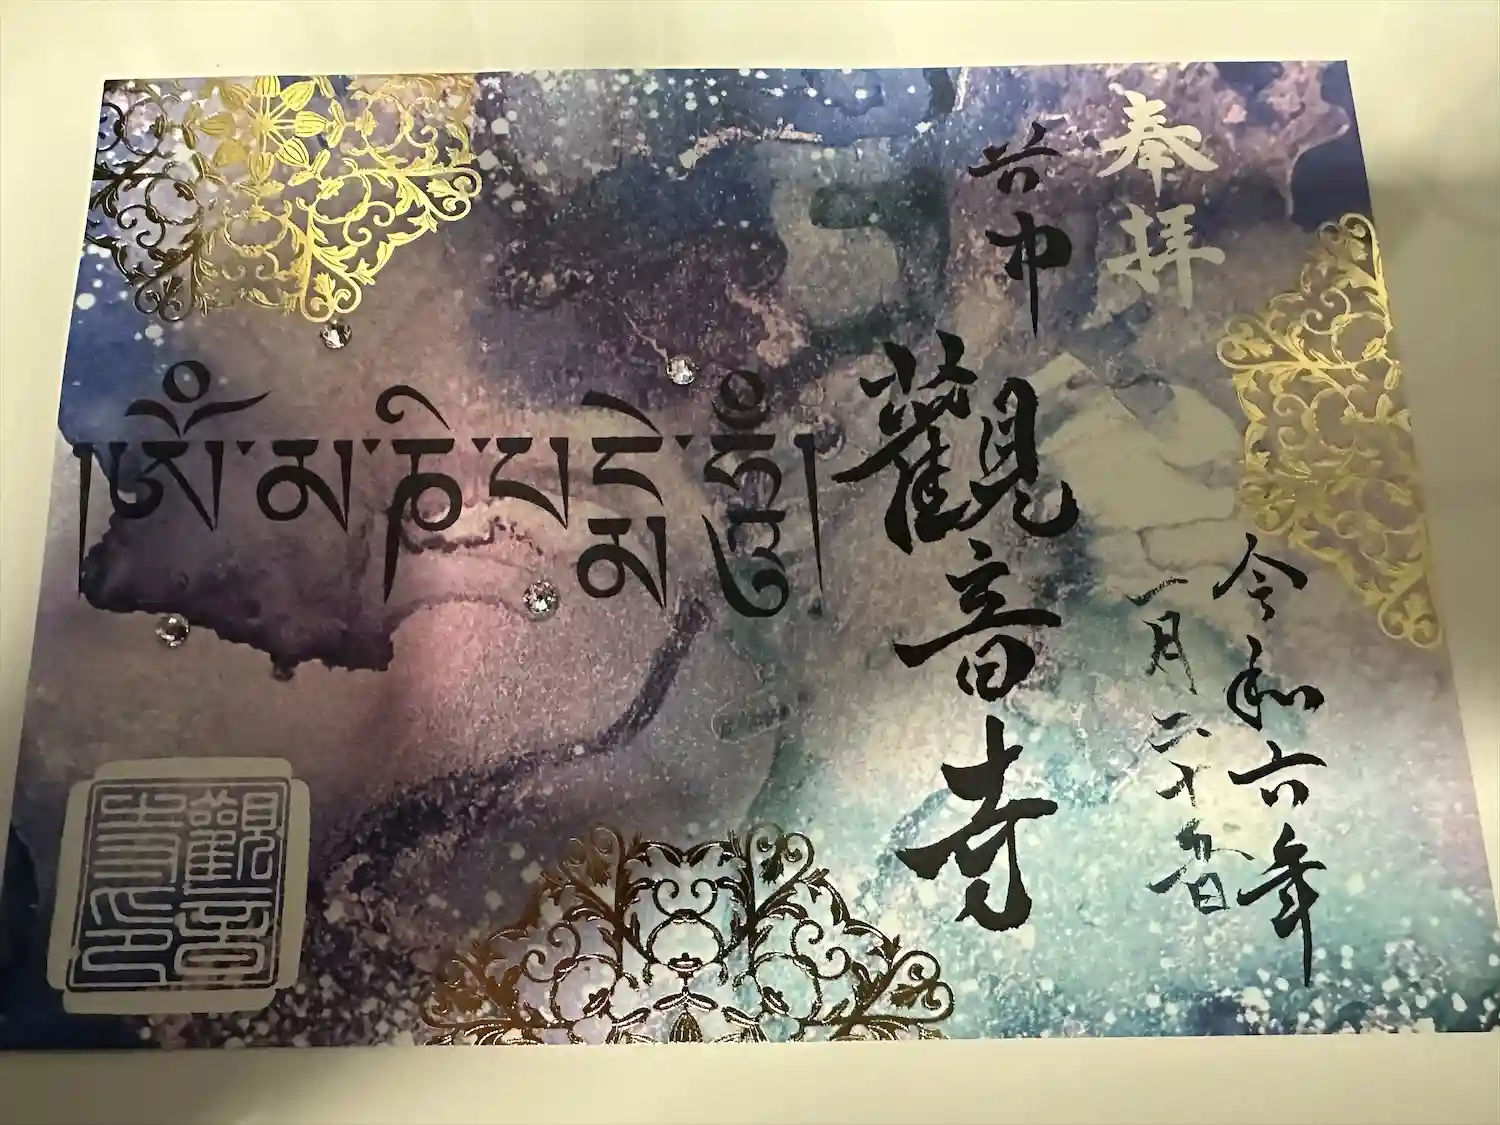 奉拝
谷中
觀音寺
令和六年
一月二十
།ཨོཾ་མ་ཎི་པདྨེ་ཧཱུྃ།
觀音
寺印